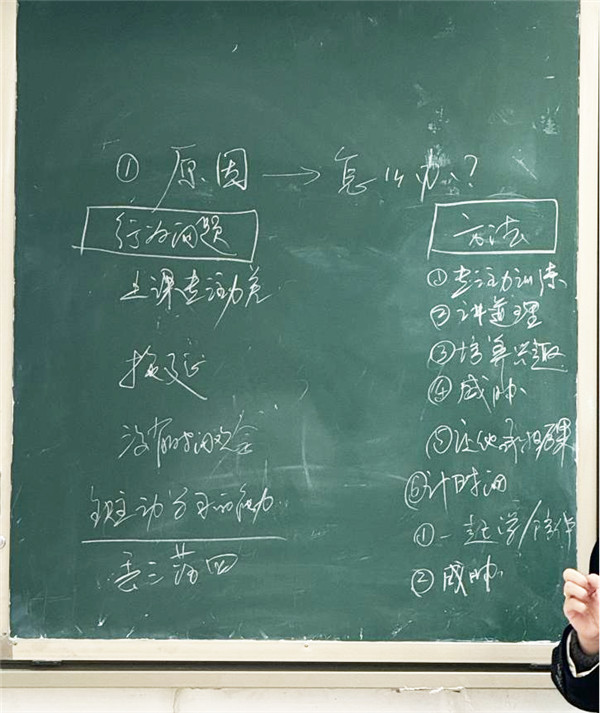 ① 原因 → 怎么办?
行为问题
上课专注力差
拖延
没有时间观念
自主动学习的能力
丢三落四
方法
①专注力训练
②讲道理
③培养兴趣
④威吓
⑤让他承担后果
⑥计时间
①一起学/陪伴
②威吓